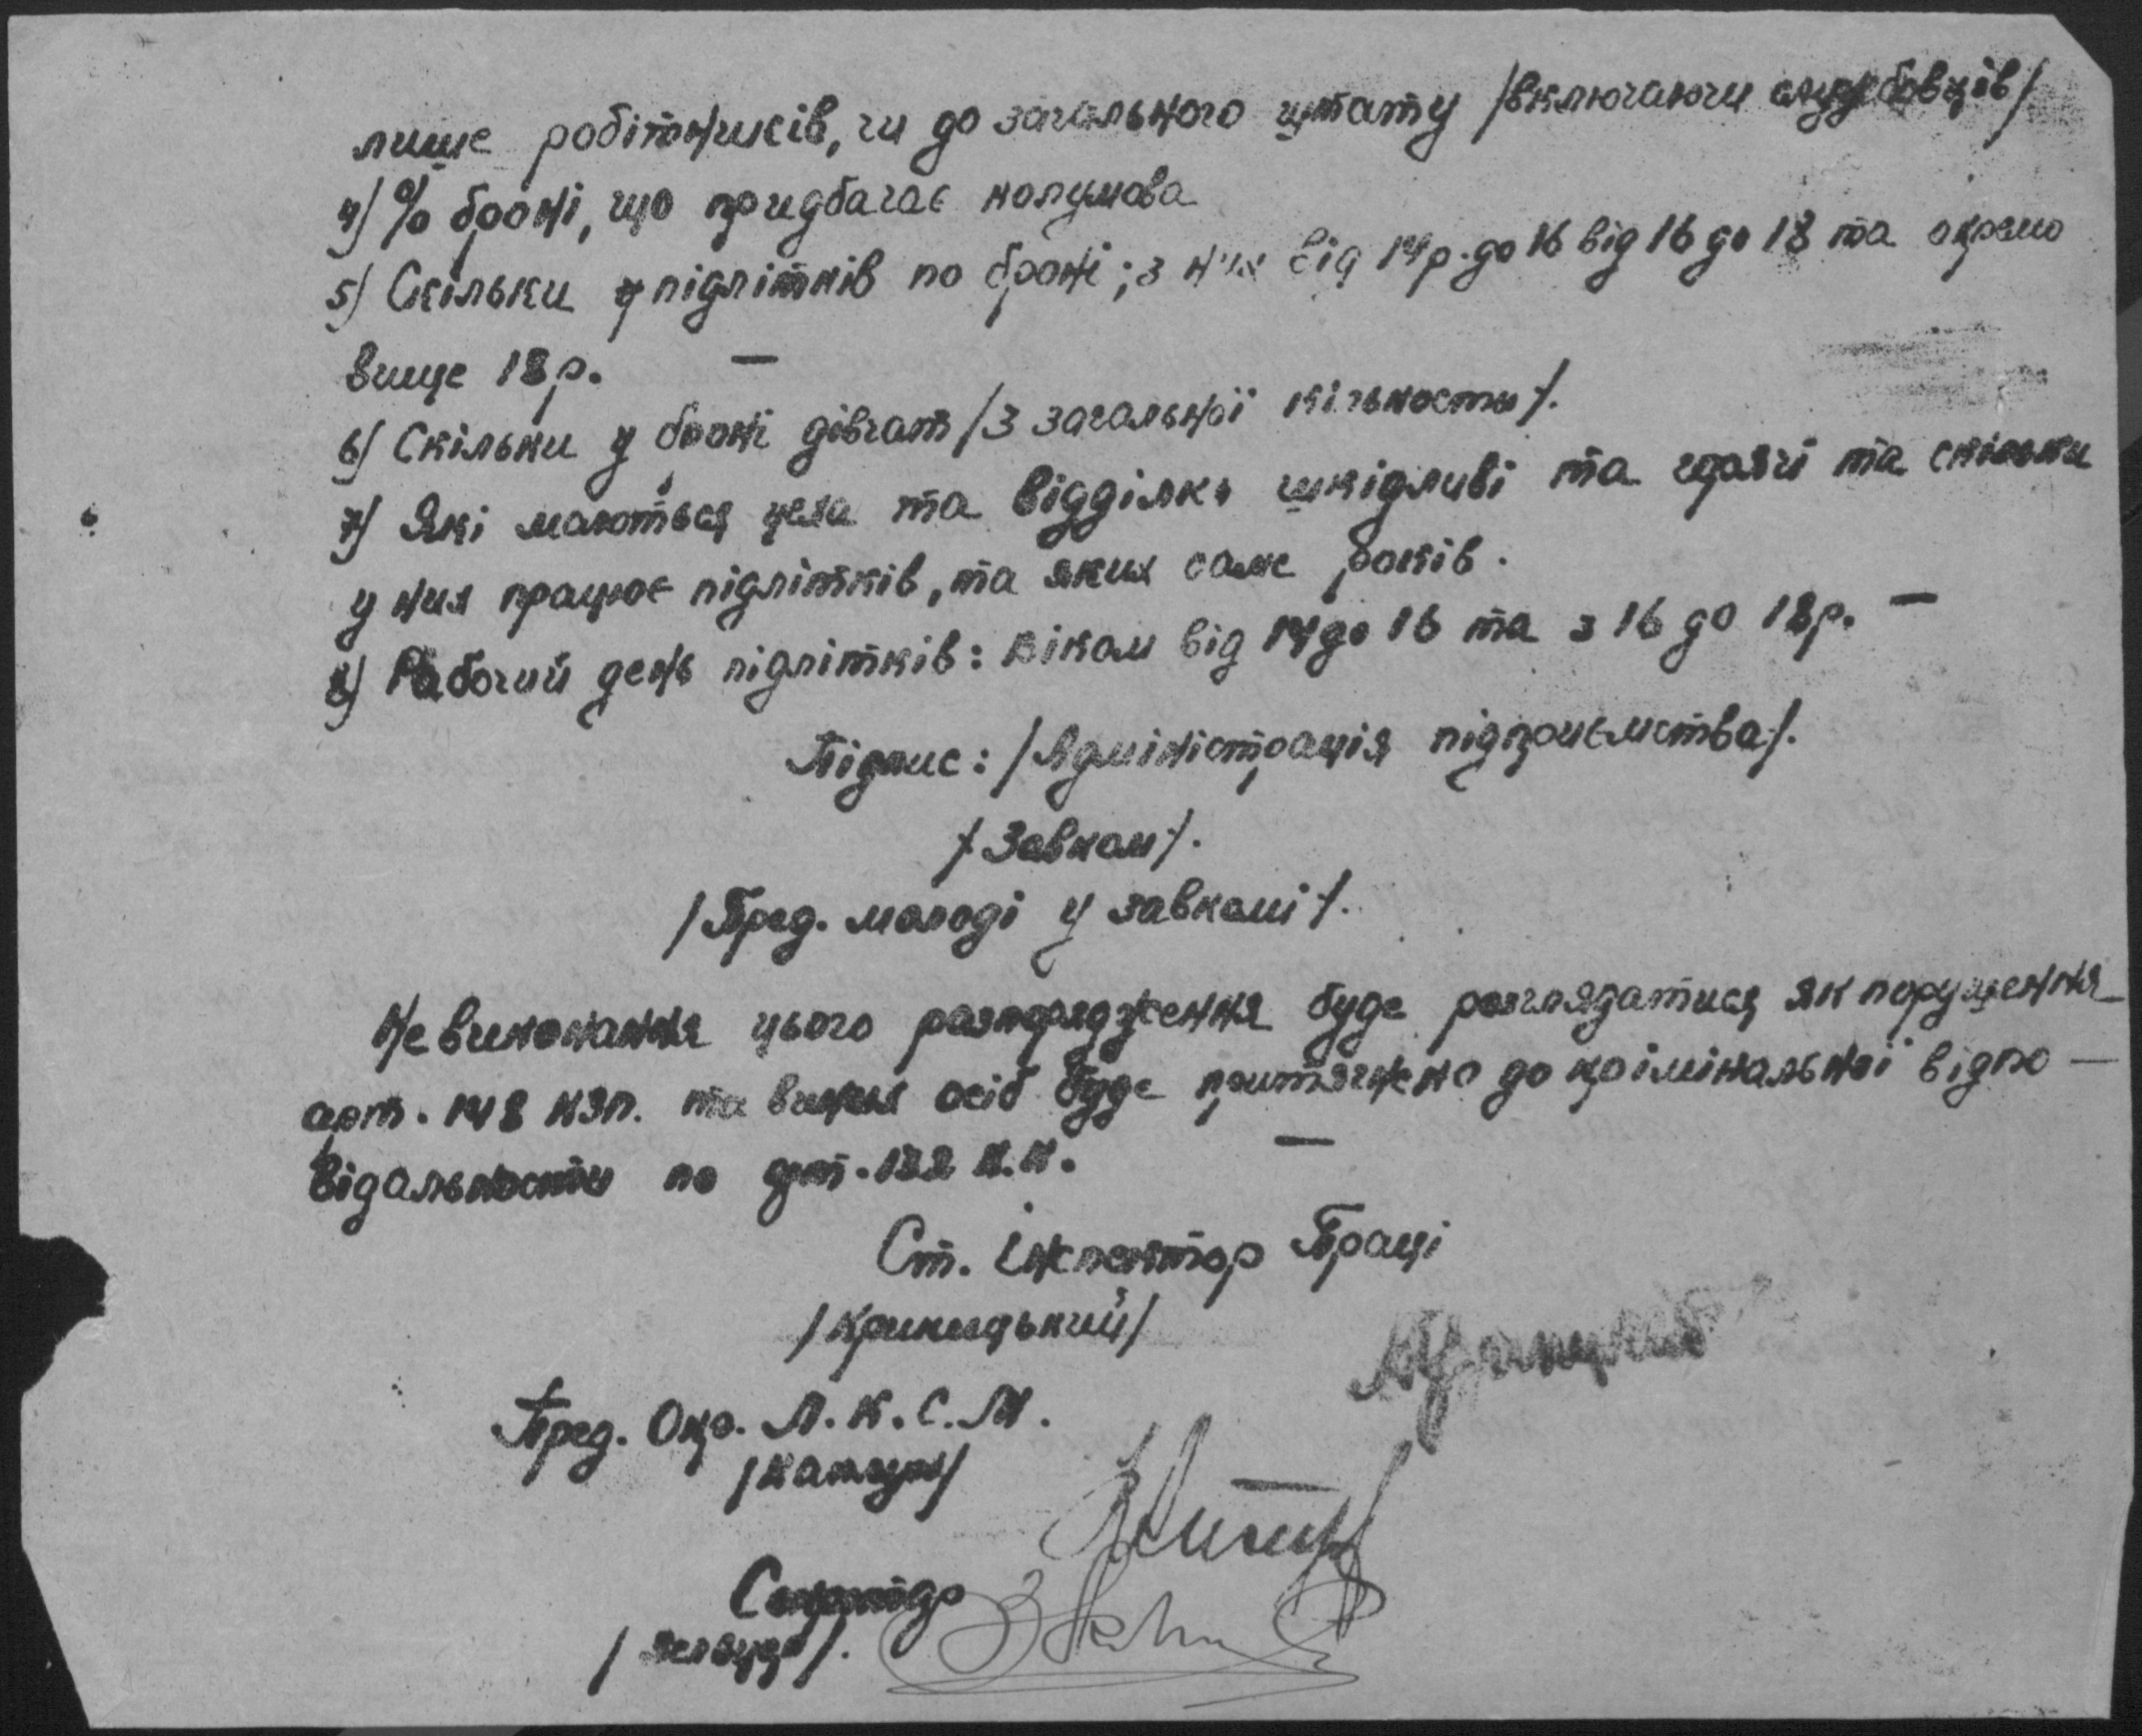 лише робітників, чи до загального штату /включаючи службовців/
4/ % броні, що придбачає колумова
5/ Скільки у підлітків по броні; з них від 14 р. до 16 від 16 до 18 та окремо
вище 18 р. —
6/ Скільки у броні дівчат /з загальної кількости/.
7/ Які маються цеха та відділки шкідливі та гарячі та скільки
у них працює підлітків, та яких саме років.
8/ Рабочий день підлітків: віком від 14 до 16 та з 16 до 18 р. —
Підпис: /Адміністрація підприємства/.
/Завком/.
/Пред. молоді у завкомі/.
Невиконання цього разпорядження буде розглядатися як порушення
арт. 148 КЗп. та винних осіб буде притягнено до крімінальної відпо—
відальности по арт. 132 К.К. —
Ст. Інспектор Праці
/Криницький/
Пред. Окр. Л.К.С.М.
Секретар